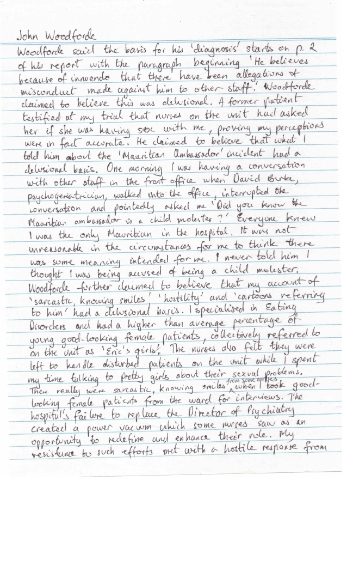 John Woodforde
Woodforde said the basis for his 'diagnosis' starts on p. 2
of his report with the paragraph beginning 'He believes
because of inuendo that there have been allegations of
misconduct made against him to other staff.' Woodforde
claimed to believe this was delusional. A former patient
testified at my trial that nurses on the unit had asked
her if she was having sex with me, proving my perceptions
were in fact accurate. He claimed to believe that what I
told him about the 'Mauritian Ambassador' incident had a
delusional basis. One morning I was having a conversation
with other staff in the front office when David Burke,
psychogeriatrician, walked into the office, interrupted the
conversation and pointedly asked me 'Did you know the
Mauritian ambassador is a child molester?' Everyone knew
I was the only Mauritian in the hospital. It was not
unreasonable in the circumstances for me to think there
was some meaning intended for me. I never told him I
thought I was being accused of being a child molester.
Woodforde further claimed to believe that my account of
'sarcastic, knowing smiles' 'hostility' and 'cartoons referring
to him' had a delusional basis. I specialised in Eating
Disorders and had a higher than average percentage of
young good-looking female patients, collectively referred to
on the unit as 'Eric's girls'. The nurses also felt they were
left to handle disturbed patients on the unit while I spent
my time talking to pretty girls about their sexual problems.
There really were sarcastic, knowing smiles, when I took good-
looking female patients from the ward for interviews. The
hospital's failure to replace the Director of Psychiatry
created a power vacuum which some nurses saw as an
opportunity to redefine and enhance their role. My
resistance to such efforts met with a hostile response from